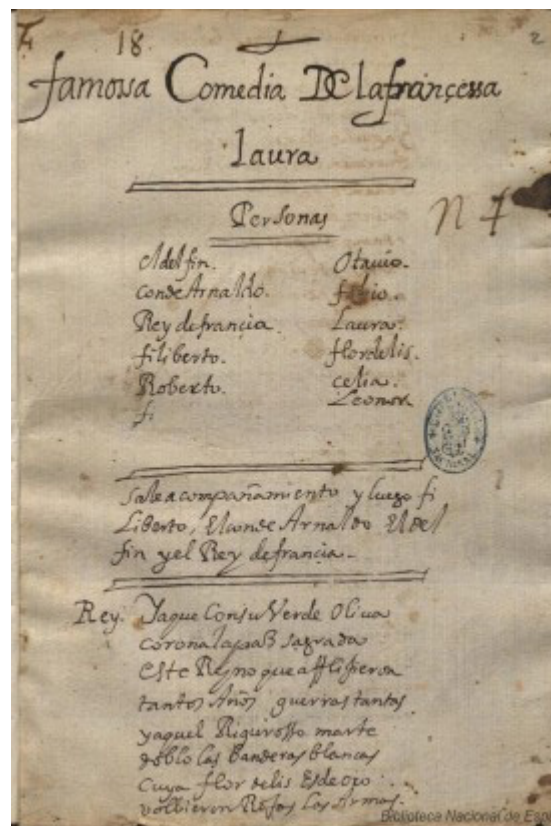 18.
2
famossa Comedia De la françessa
laura
Personas
n 7
el delfin.
conde Arnaldo.
Rey de françia.
filiberto.
Roberto.
fi
Otauio.
fabio.
Laura.
flordelis.
celia.
Leonor
Sale acompañamiento y luego fi
Liberto, El conde Arnaldo El del
fin y el Rey de françia.
Rey. Ya que Con su Verde Oliua
corona la paz sagrada
este Reyno que affligieron
tantos Años guerras tantas
y aquel Rigurosso marte
doblo las Banderas blancas
Cuya flor delis Es de oro
volbieron Rojas Las Armas.
Biblioteca Nacional de Esp